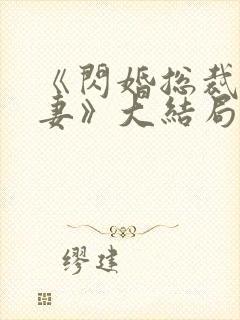 《閃婚总裁
妻》大結局
缪建